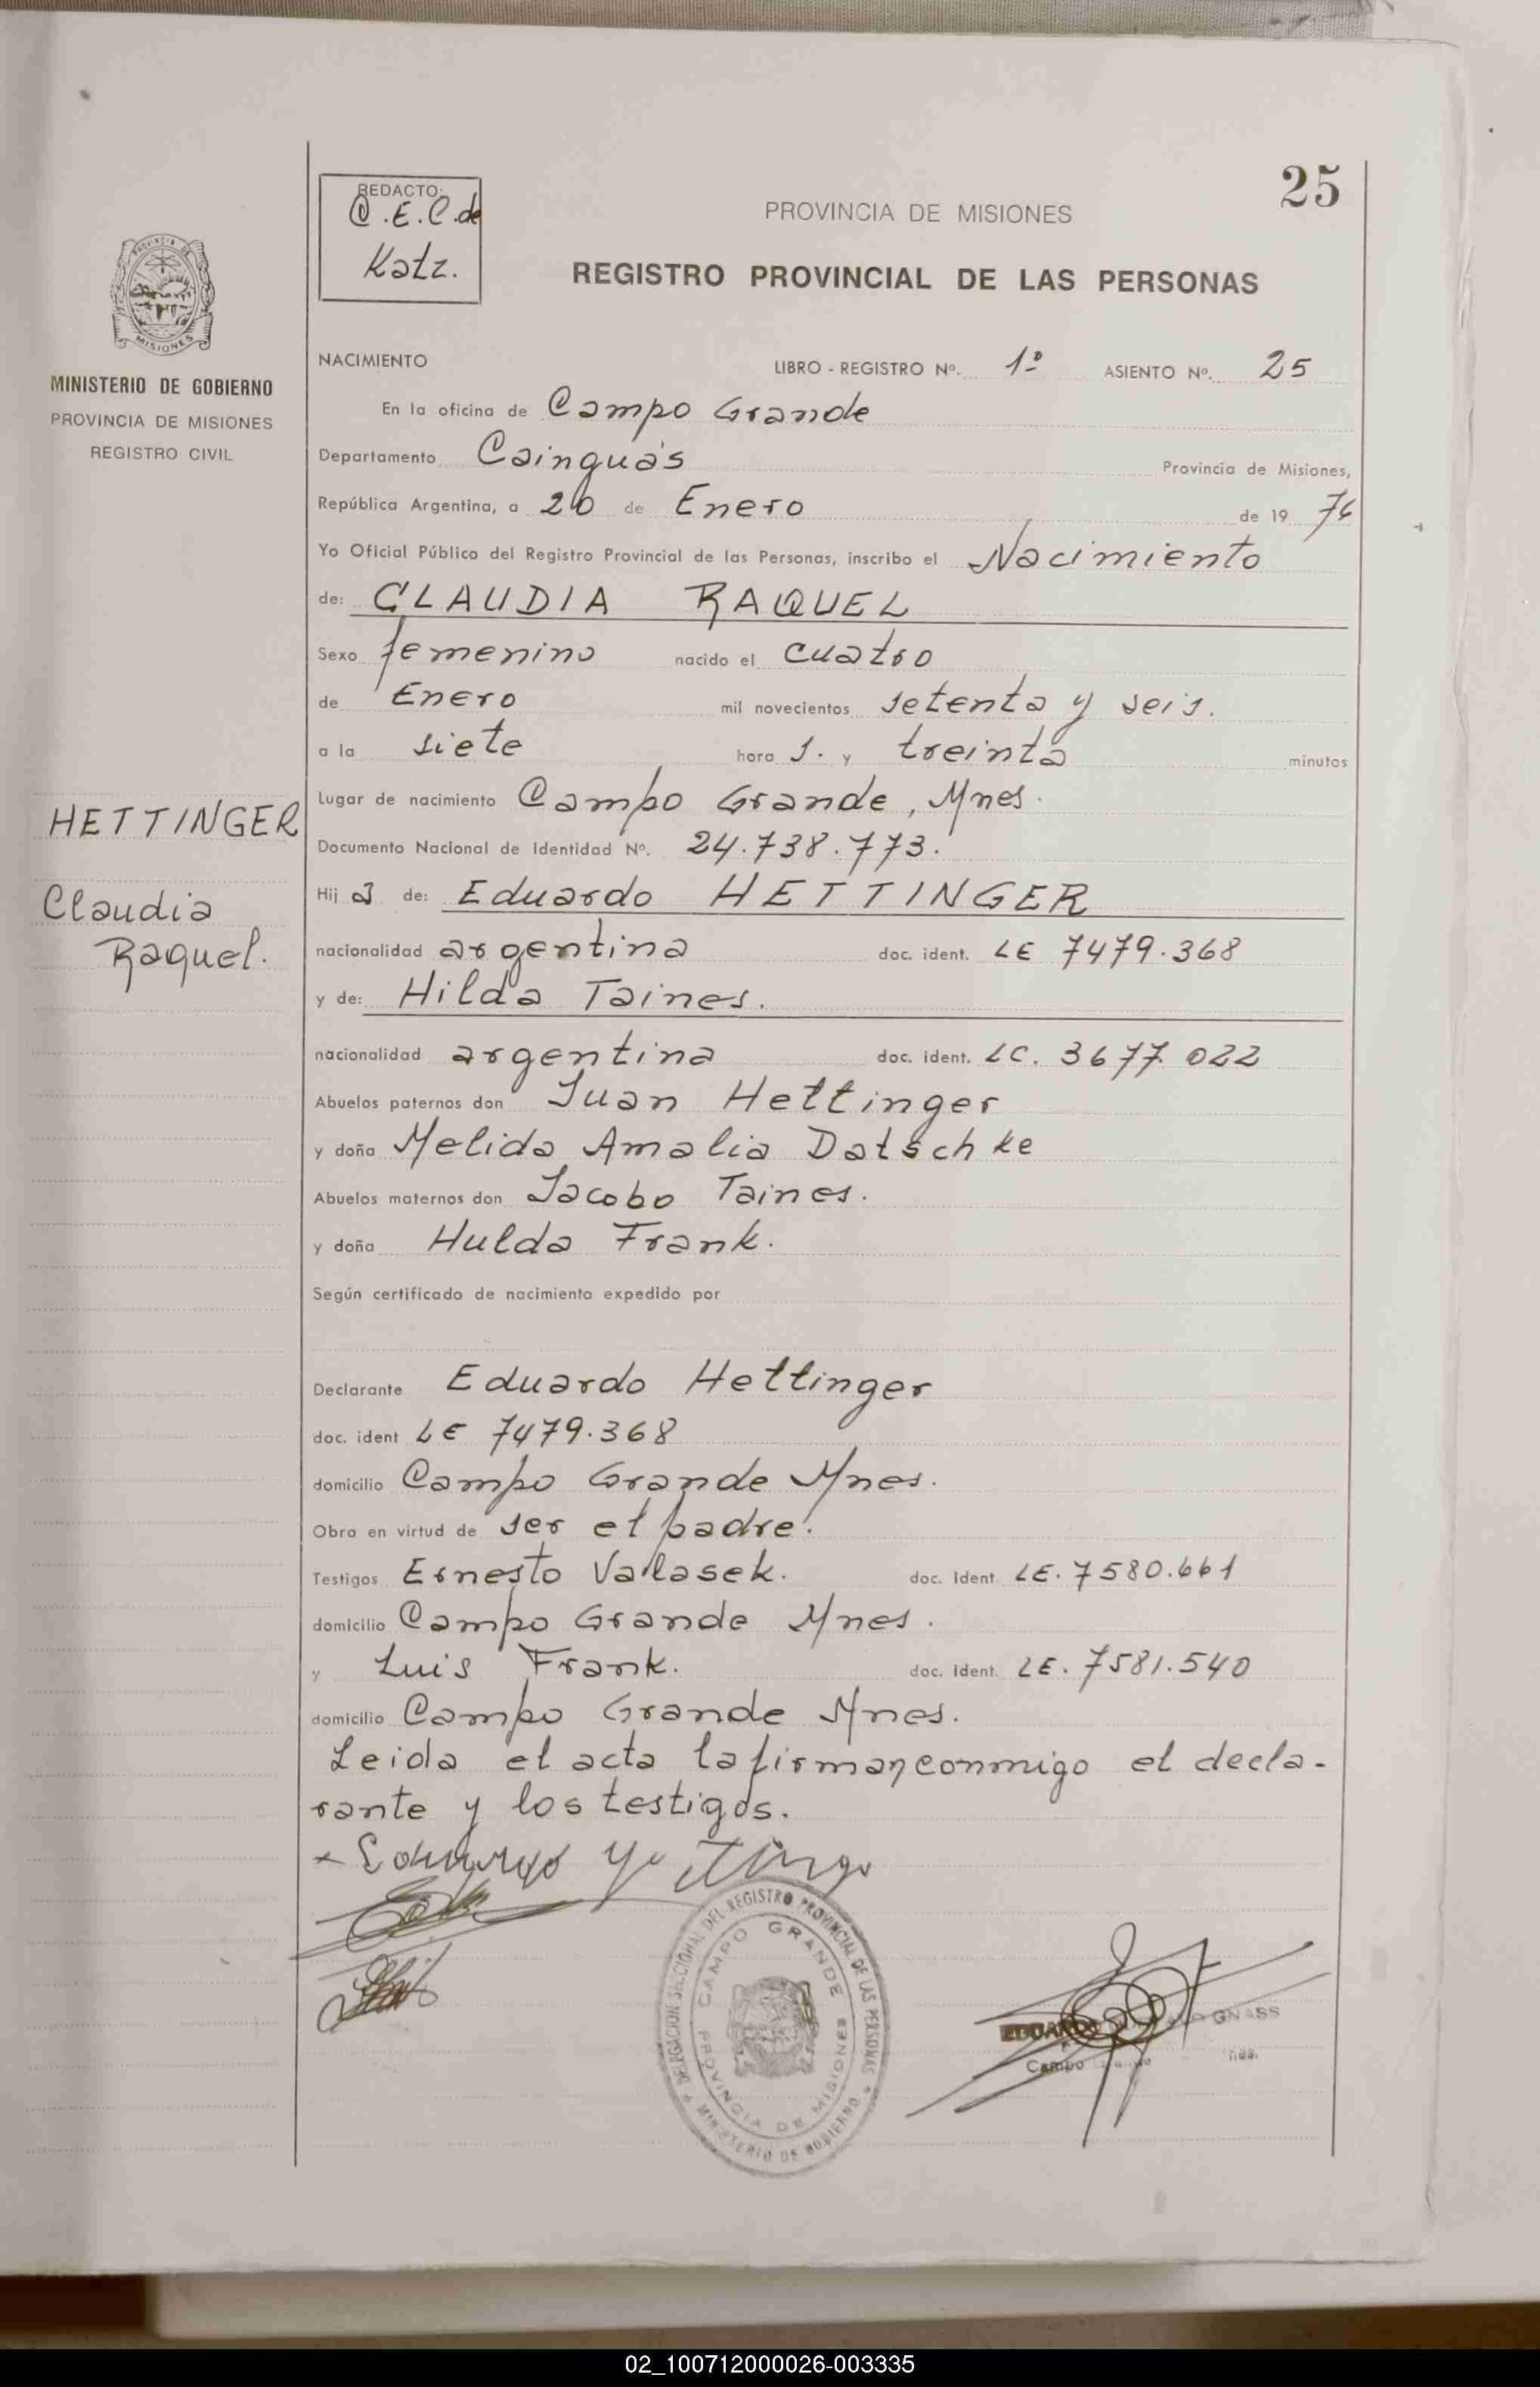 25
REDACTO:
C.E.C.de
Katz.
PROVINCIA DE MISIONES
REGISTRO PROVINCIAL DE LAS PERSONAS
MISIONES
MINISTERIO DE GOBIERNO
PROVINCIA DE MISIONES
REGISTRO CIVIL
NACIMIENTO LIBRO - REGISTRO Nº. 1º ASIENTO Nº. 25
En la oficina de Campo Grande
Departamento Cainguás Provincia de Misiones,
República Argentina, a 20 de Enero de 19 76
Yo Oficial Público del Registro Provincial de las Personas, inscribo el Nacimiento
de: CLAUDIA RAQUEL
Sexo femenino nacido el cuatro
de Enero mil novecientos setenta y seis.
a la siete hora s. y treinta minutos
Lugar de nacimiento Campo Grande, Mnes.
HETTINGER
Claudia
Raquel.
Documento Nacional de Identidad Nº. 24.738.773.
Hij a de: Eduardo HETTINGER
nacionalidad argentina doc. ident. LE 7479.368
y de: Hilda Taines.
nacionalidad argentina doc. ident. LC. 3677.022
Abuelos paternos don Juan Hettinger
y doña Melida Amalia Datschke
Abuelos maternos don Jacobo Taines.
y doña Hulda Frank.
Según certificado de nacimiento expedido por
Declarante Eduardo Hettinger
doc. ident LE 7479.368
domicilio Campo Grande Mnes.
Obra en virtud de ser el padre.
Testigos Ernesto Vallasek. doc. Ident. LE. 7580.661
domicilio Campo Grande Mnes.
y Luis Frank. doc. ident. LE. 7581.540
domicilio Campo Grande Mnes.
Leida el acta la firman conmigo el decla-
rante y los testigos.
DELEGACION SECCIONAL DEL REGISTRO PROVINCIAL DE LAS PERSONAS
MINISTERIO DE GOBIERNO
CAMPO GRANDE
PROVINCIA DE MISIONES
EDUARDO GNASS
Campo
02_100712000026-003335